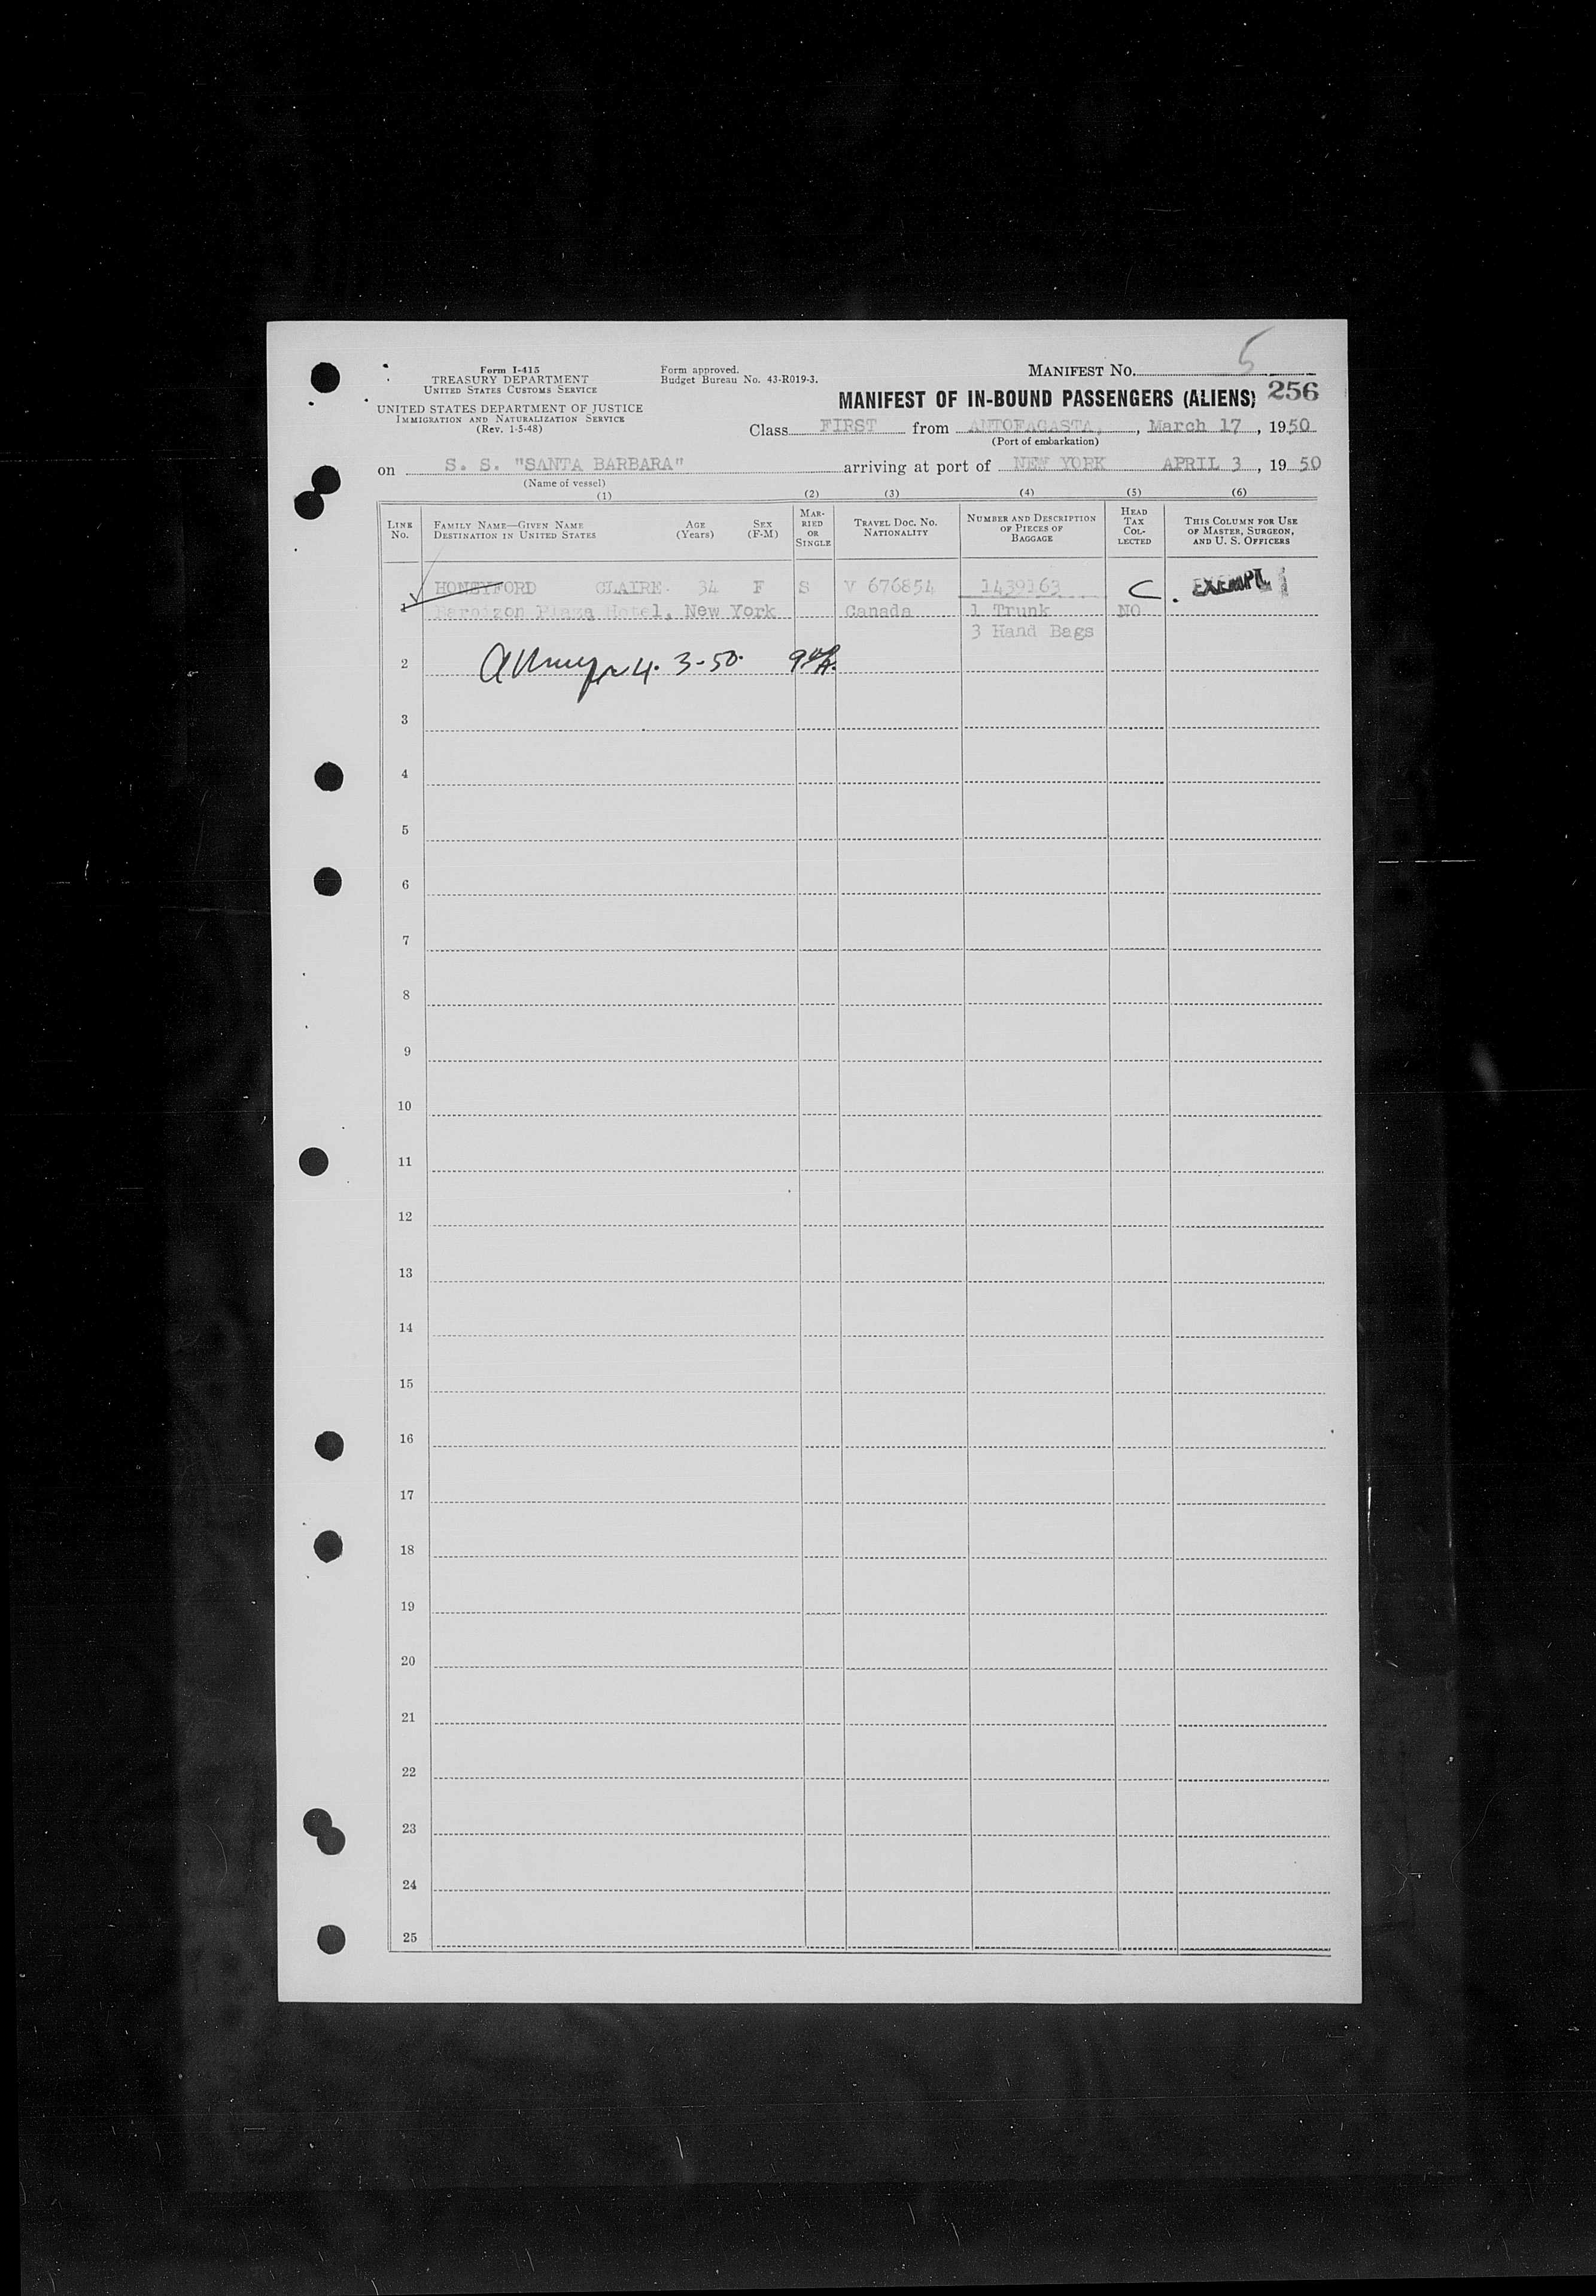 5
Form I-415
TREASURY DEPARTMENT
UNITED STATES CUSTOMS SERVICE
Form approved.
Budget Bureau No. 43-R019-3.
MANIFEST No.
UNITED STATES DEPARTMENT OF JUSTICE
IMMIGRATION AND NATURALIZATION SERVICE
(Rev. 1-5-48)
MANIFEST OF IN-BOUND PASSENGERS (ALIENS) 256
Class FIRST from ANTOFAGASTA, , March 17 , 1950
(Port of embarkation)
on S. S. "SANTA BARBARA" arriving at port of NEW YORK APRIL 3 , 19 50
(Name of vessel)
(1) (2) (3) (4) (5) (6)
LINE No. FAMILY NAME—GIVEN NAME DESTINATION IN UNITED STATES AGE (Years) SEX (F-M) MARRIED OR SINGLE TRAVEL DOC. NO. NATIONALITY NUMBER AND DESCRIPTION OF PIECES OF BAGGAGE HEAD TAX COLLECTED THIS COLUMN FOR USE OF MASTER, SURGEON, AND U. S. OFFICERS
HONEYFORD CLAIRE 34 F S V 676854 1439163 C EXEMPT
1 Barbizon Plaza Hotel, New York Canada 1 Trunk NO
3 Hand Bags
2 4-3-50
3
4
5
6
7
8
9
10
11
12
13
14
15
16
17
18
19
20
21
22
23
24
25